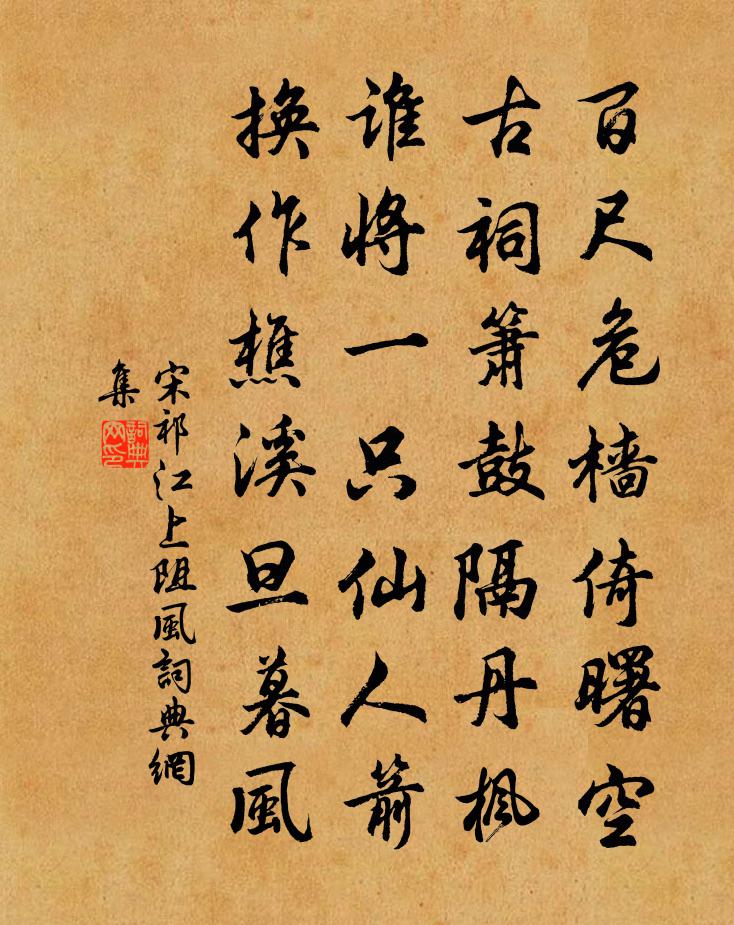 百尺危檣倚曙空
古祠簫鼓隔丹楓
誰將一只仙人箭
換作樵溪旦暮風
宋祁江上阻風詞典網
集
詞典網印